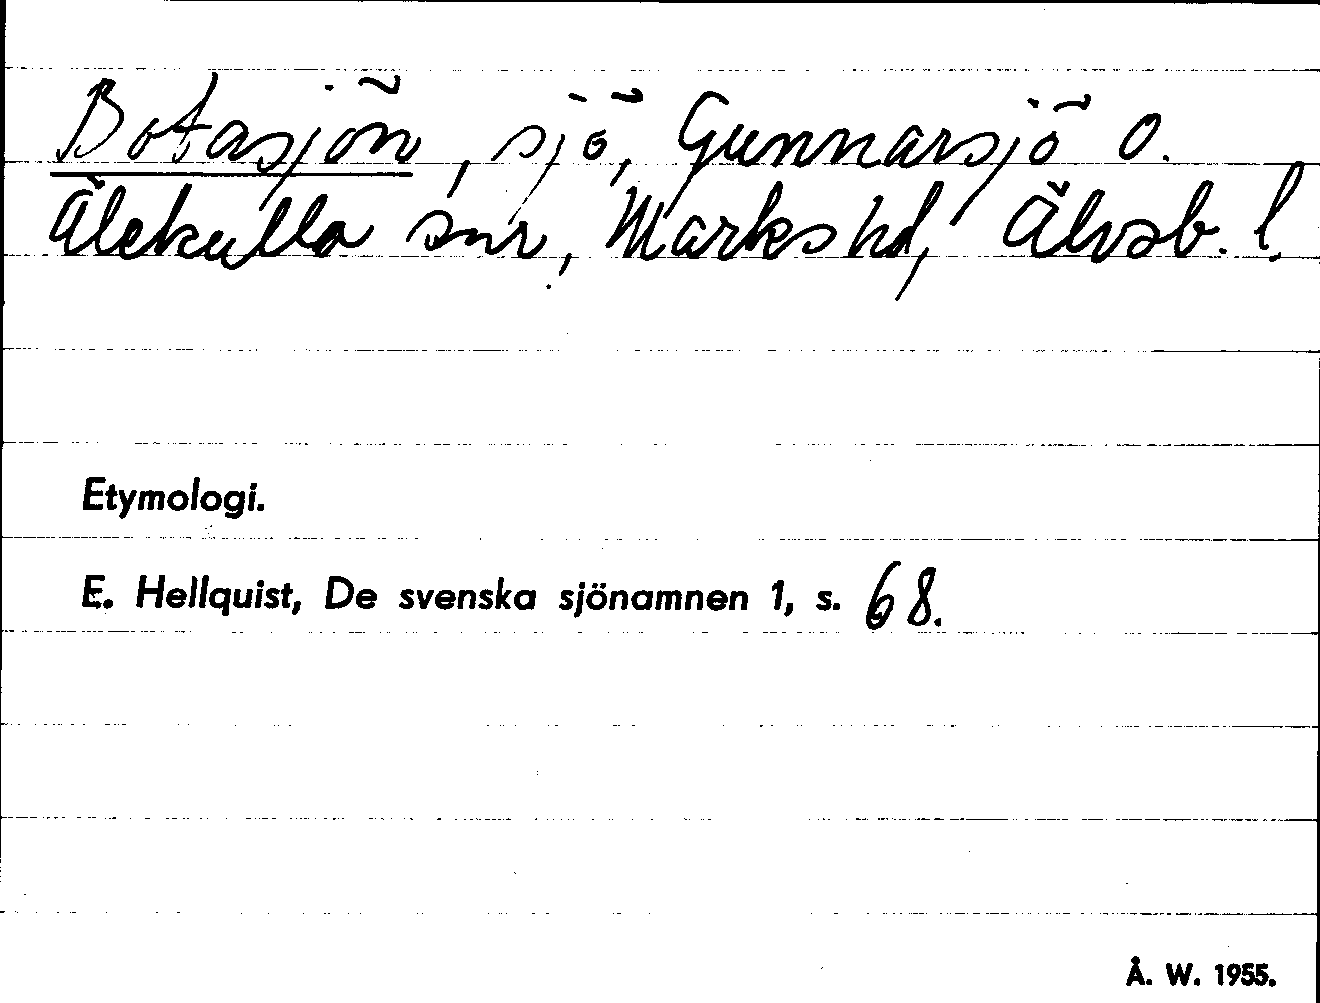 Botasjön, sjö, Gunnarsjö o.
Älekulla snr, Marks hd, Älvsb. l.
Etymologi.
E. Hellquist, De svenska sjönamnen 1, s. 68.
Å. W. 1955.